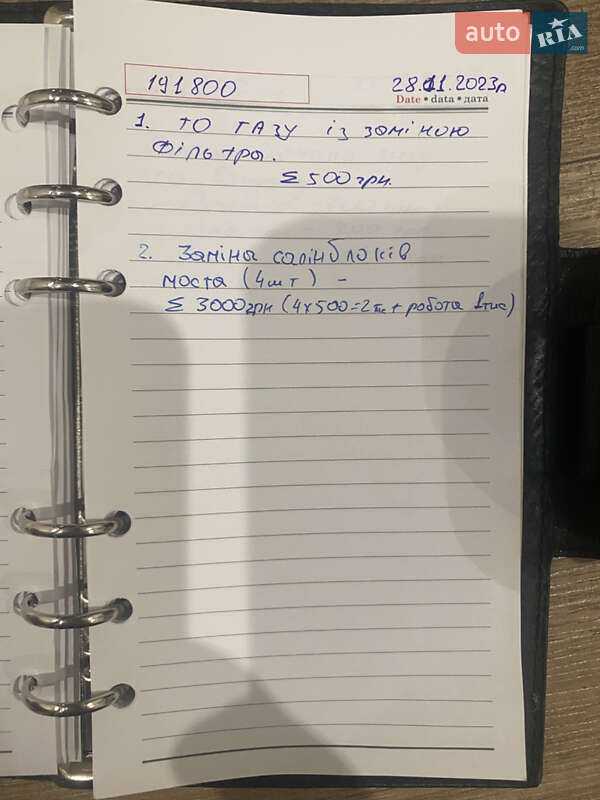 auto RIA.com
191800
28.11.2023р
Date • data • дата
1. ТО газу із заміною
фільтра.
Σ 500грн.
2. Заміна салінблоків
моста (4шт) -
Σ 3000грн (4х500=2тис + робота 1тис)